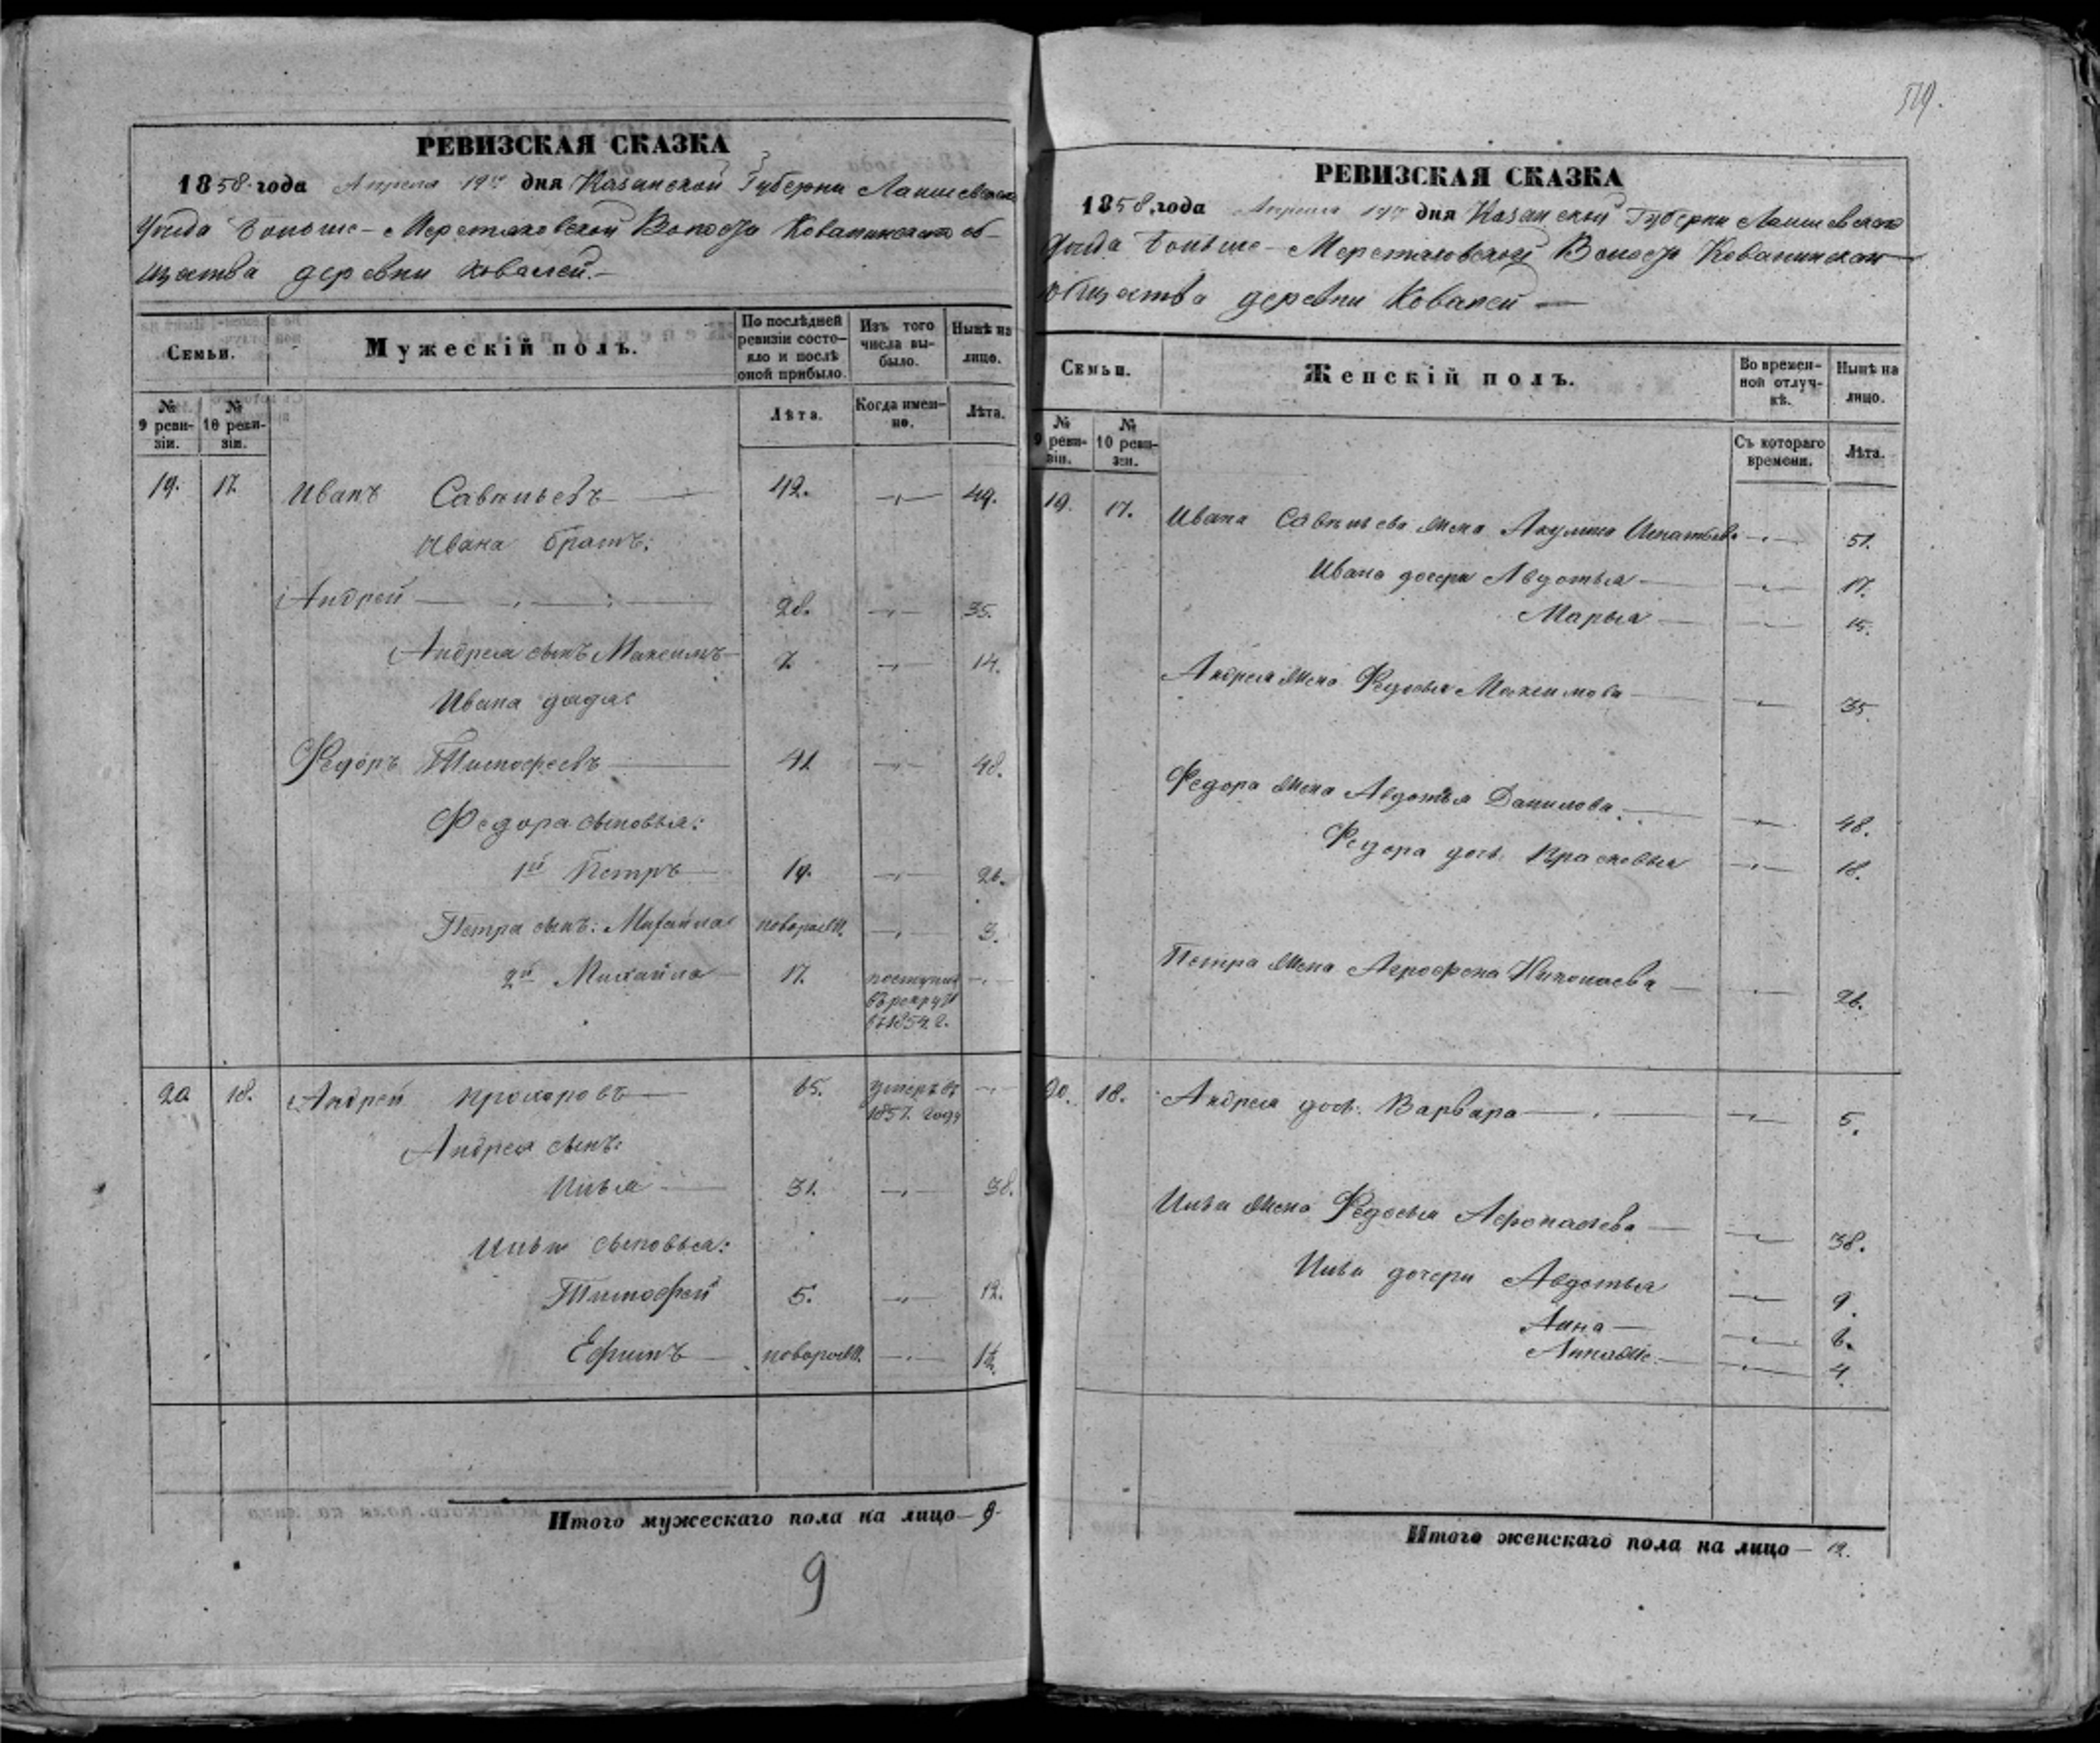 РЕВИЗСКАЯ СКАЗКА
1858 года Апреля 19го дня Казанской Губерни Лаишевскаго
Уезда Больше-Меретяковской Волости Ковалинскаго об-
щества деревни Ковалей.
Семьи.
Мужескій полъ.
По послѣдней ревизіи состояло и послѣ оной прибыло.
Изъ того числа выбыло.
Нынѣ на лицо.
№ 9 ревизіи.
№ 10 ревизіи.
Лѣта.
Когда именно.
Лѣта.
19. 17. Иванъ Савельевъ 42. 49.
Ивана братъ:
Андрей 28. 35.
Андрея сынъ Максимъ 7. 14.
Ивана дядя:
Федоръ Тимофеевъ 41 48.
Федора сыновья:
1й Петръ 19. 26.
Петра сынъ: Михайла новорожд. 3.
2й Михайло 17. поступил
въ рекруты
въ 1854 г.
20 18. Андрей Прохоровъ 65. умеръ въ
1857. году
Андрея сынъ:
Илья 31. 38.
Ильи сыновья:
Тимофей 5. 12.
Ефимъ новорожд. 1½.
Итого мужескаго пола на лицо 9
9
519.
РЕВИЗСКАЯ СКАЗКА
1858 года Апреля 19го дня Казанской Губерни Лаишевскаго
Уезда Больше-Меретяковской Волости Ковалинскаго
общества деревни Ковалей
Семьи.
Женскій полъ.
Во временной отлучкѣ.
Нынѣ на лицо.
№ 9 ревизіи.
№ 10 ревизіи.
Съ котораго времени.
Лѣта.
19. 17. Ивана Савельева жена Акулина Игнатьева 51.
Ивана дочери Авдотья 17.
Марья 15.
Андрея жена Федосья Максимова 35.
Федора жена Авдотья Данилова 48.
Федора дочь Прасковья 18.
Петра жена Агрофена Николаева 26.
20. 18. Андрея дочь. Варвара 5.
Ильи жена Федосья 38.
Ильи дочери Авдотья 9.
Анна 6.
4.
Итого женскаго пола на лицо 12.